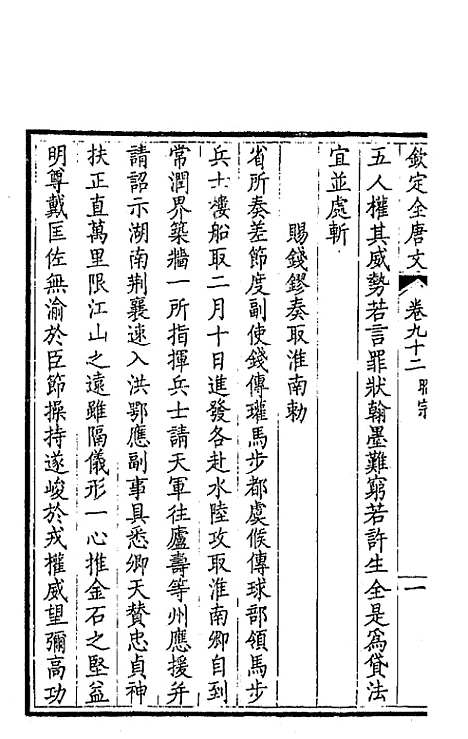 欽定全唐文 卷九十二 昭宗 一
五人權其威勢若言罪狀翰墨難窮若許生全是為貸法
宜並處斬
賜錢鏐奏取淮南勅
省所奏差節度副使錢傳瓘馬步都虞候傳球部領馬步
兵士樓船取二月十日進發各赴水陸攻取淮南卿自到
常潤界築牆一所指揮兵士請天軍往廬壽等州應援并
請詔示湖南荆襄速入洪鄂應副事具悉卿天賛忠貞神
扶正直萬里限江山之遠雖隔儀形一心推金石之堅益
明尊戴匡佐無渝於臣節操持遂峻於戎權威望彌高功